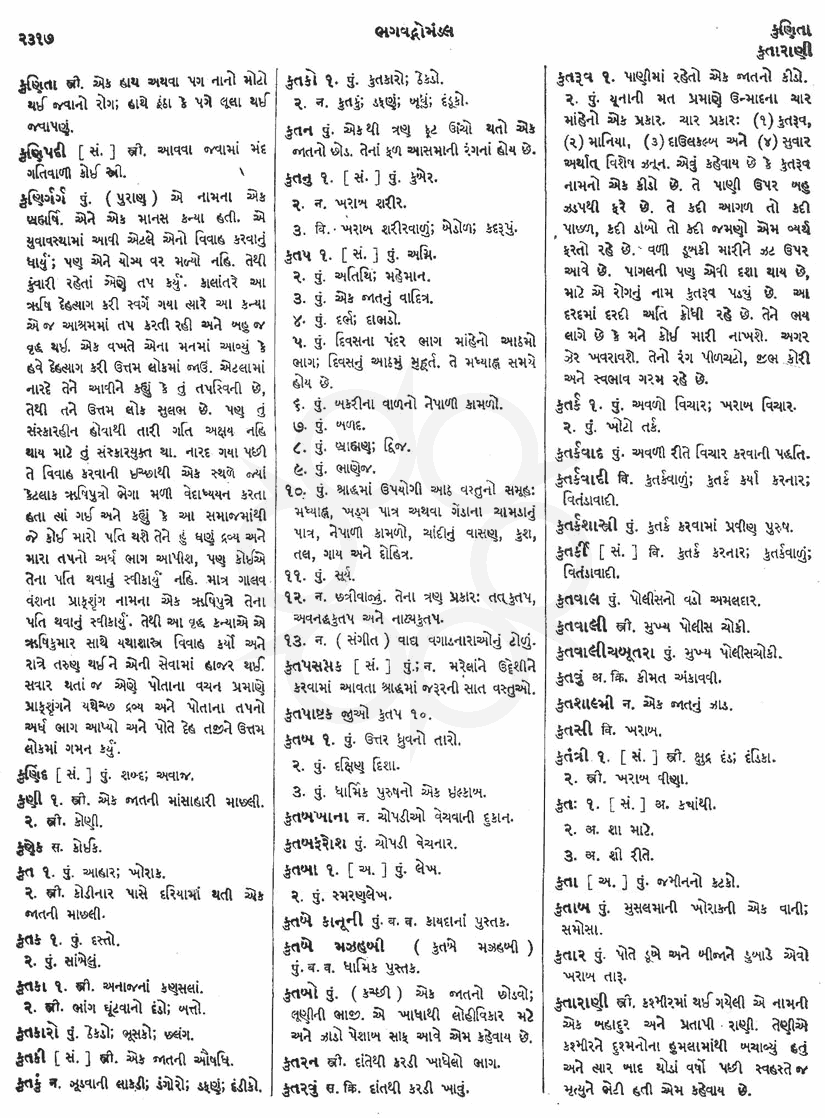 ૨૩૧૭
ભગવદ્ગોમંડલ
કુણિતા
કુતારાણી
કુણિતા સ્ત્રી. એક હાથ અથવા પગ નાનો મોટો
થઈ જવાનો રોગ; હાથે ઠૂંઠા કે પગે લૂલા થઈ
જવાપણું.
કુણિપદી [ સં. ] સ્ત્રી. આવવા જવામાં મંદ
ગતિવાળી કોઈ સ્ત્રી.
કુણિર્ગર્ગ પું. ( પુરાણ ) એ નામના એક
બ્રહ્મર્ષિ. એને એક માનસ કન્યા હતી. એ
યુવાવસ્થામાં આવી એટલે એનો વિવાહ કરવાનું
ધાર્યું; પણ એને યોગ્ય વર મળ્યો નહિ. તેથી
કુંવારી રહેતાં એણે તપ કર્યું. કાલાંતરે આ
ઋષિ દેહત્યાગ કરી સ્વર્ગે ગયા ત્યારે આ કન્યા
એ જ આશ્રમમાં તપ કરતી રહી અને બહુ જ
વૃદ્ધ થઈ. એક વખતે એના મનમાં આવ્યું કે
હવે દેહત્યાગ કરી ઉત્તમ લોકમાં જાઉં. એટલામાં
નારદે તેને આવીને કહ્યું કે તું તપસ્વિની છે,
તેથી તને ઉત્તમ લોક સુલભ છે. પણ તું
સંસ્કારહીન હોવાથી તારી ગતિ અક્ષય નહિ
થાય માટે તું સંસ્કારયુક્ત થા. નારદ ગયા પછી
તે વિવાહ કરવાની ઇચ્છાથી એક સ્થળે જ્યાં
કેટલાક ઋષિપુત્રો ભેગા મળી વેદાધ્યયન કરતા
હતા ત્યાં ગઈ અને કહ્યું કે આ સમાજમાંથી
જે કોઈ મારો પતિ થશે તેને હું ઘણું દ્રવ્ય અને
મારા તપનો અર્ધ ભાગ આપીશ, પણ કોઈએ
તેના પતિ થવાનું સ્વીકાર્યું નહિ. માત્ર ગાલવ
વંશના પ્રાક્શૃંગ નામના એક ઋષિપુત્રે તેના
પતિ થવાનું સ્વીકાર્યું. તેથી આ વૃદ્ધ કન્યાએ એ
ઋષિકુમાર સાથે યથાશાસ્ત્ર વિવાહ કર્યો અને
રાત્રે તરુણ થઈ ને એની સેવામાં હાજર થઈ
સવાર થતાં જ એણે પોતાના વચન પ્રમાણે
પ્રાક્શૃંગને યથેચ્છ દ્રવ્ય અને પોતાના તપનો
અર્ધ ભાગ આપ્યો અને પોતે દેહ તજીને ઉત્તમ
લોકમાં ગમન કર્યું.
કુણિંદ [ સં. ] પું. શબ્દ; અવાજ.
કુણી ૧. સ્ત્રી. એક જાતની માંસાહારી માછલી.
૨. સ્ત્રી. કોણી.
કુણેક સ. કોઈક.
કુત ૧. પું. આહાર; ખોરાક.
૨. સ્ત્રી. કોડીનાર પાસે દરિયામાં થતી એક
જાતની માછલી.
કુતક ૧. પું. દસ્તો.
૨. પું. સાંબેલું.
કુતકા ૧. સ્ત્રી. અનાજનાં કણુસલાં.
૨. સ્ત્રી. ભાંગ ઘૂંટવાનો દંડો; બત્તો.
કુતકારો પું. ઠેકડો; ભૂસકો; છલંગ.
કુતકી [ સં. ] સ્ત્રી. એક જાતની ઔષધિ.
કુતકું ન. ઝૂડવાની લાકડી; ડંગોરો; ડફણું; દંડીકો.
કુતકો ૧. પું. કુતકારો; ઠેકડો.
૨. ન. કુતકું; ડફણું; બૂધું; દંડૂકો.
કુતન પું. એકથી ત્રણ ફૂટ ઊંચો થતો એક
જાતનો છોડ. તેનાં ફળ આસમાની રંગનાં હોય છે.
કુતનુ ૧. [ સં. ] પું. કુબેર.
૨. ન. ખરાબ શરીર.
૩. વિ. ખરાબ શરીરવાળું; બેડોળ; કદરૂપું.
કુતપ ૧. [ સં. ] પું. અગ્નિ.
૨. પું. અતિથિ; મહેમાન.
૩. પું. એક જાતનું વાદિત્ર.
૪. પું. દર્ભ; દાભડો.
૫. પું. દિવસના પંદર ભાગ માંહેનો આઠમો
ભાગ; દિવસનું આઠમું મુહૂર્ત. તે મધ્યાહ્ન સમયે
હોય છે.
૬. પું. બકરીના વાળનો નેપાળી કામળો.
૭. પું. બળદ.
૮. પું. બ્રાહ્મણ; દ્વિજ.
૯. પું. ભાણેજ.
૧૦. પું. શ્રાદ્ધમાં ઉપયોગી આઠ વસ્તુનો સમૂહ:
મધ્યાહ્ન, ખડ્ગ પાત્ર અથવા ગેંડાના ચામડાનું
પાત્ર, નેપાળી કામળો, ચાંદીનું વાસણ, કુશ,
તલ, ગાય અને દૌહિત્ર.
૧૧. પું. સૂર્ય.
૧૨. ન. છત્રીવાજું. તેના ત્રણ પ્રકાર: તત્કુતપ,
અવનદ્ધકુતપ અને નાટ્યકુતપ.
૧૩. ન. ( સંગીત ) વાદ્ય વગાડનારાઓનું ટોળું.
કુતપસપ્તક [ સં. ] પું.; ન. મરેલાંને ઉદ્દેશીને
કરવામાં આવતા શ્રાદ્ધમાં જરૂરની સાત વસ્તુઓ.
કુતપાષ્ટક જુઓ કુતપ ૧૦.
કુતબ ૧. પું. ઉત્તર ધ્રુવનો તારો.
૨. પું. દક્ષિણ દિશા.
૩. પું. ધાર્મિક પુરુષનો એક ઇલ્કાબ.
કુતબખાના ન. ચોપડીઓ વેચવાની દુકાન.
કુતબફરોશ પું. ચોપડી વેચનાર.
કુતબા ૧. [ અ. ] પું. લેખ.
૨. પું. સ્મરણલેખ.
કુતબે કાનૂની પું. બ. વ. કાયદાનાં પુસ્તક.
કુતબે મઝહબી ( કુતબે મઝહબી )
પું. બ. વ. ધાર્મિક પુસ્તક.
કુતબો પું. ( કચ્છી ) એક જાતનો છોડવો;
લૂણીની ભાજી. એ ખાધાથી લોહીવિકાર મટે
અને ઝાડો પેશાબ સાફ આવે એમ કહેવાય છે.
કુતરન સ્ત્રી. દાંતેથી કરડી ખાધેલો ભાગ.
કુતરવું સ. ક્રિ. દાંતથી કરડી ખાવું.
કુતરૂવ ૧. પું. પાણીમાં રહેતો એક જાતનો કીડો.
૨. પું. યૂનાની મત પ્રમાણે ઉન્માદના ચાર
માંહેનો એક પ્રકાર. ચાર પ્રકાર: (૧) કુતરૂવ,
(૨) માનિયા, (૩) દાઉલકલ્બ અને (૪) સુવાર
અર્થાત્ વિશેષ ઝનૂન. એવું કહેવાય છે કે કુતરૂવ
નામનો એક કીડો છે. તે પાણી ઉપર બહુ
ઝડપથી ફરે છે. તે કદી આગળ તો કદી
પાછળ, કદી ડાબો તો કદી જમણો એમ વ્યર્થ
ફરતો રહે છે. વળી ડૂબકી મારીને ઝટ ઉપર
આવે છે. પાગલની પણ એવી દશા થાય છે,
માટે એ રોગનું નામ કુતરૂવ પડ્યું છે. આ
દરદમાં દરદી અતિ ક્રોધી રહે છે. તેને ભય
લાગે છે કે મને કોઈ મારી નાખશે. અગર
ઝેર ખવરાવશે. તેનો રંગ પીળચટો, જીભ કોરી
અને સ્વભાવ ગરમ રહે છે.
કુતર્ક ૧. પું. અવળો વિચાર; ખરાબ વિચાર.
૨. પું. ખોટો તર્ક.
કુતર્કવાદ પું. અવળી રીતે વિચાર કરવાની પદ્ધતિ.
કુતર્કવાદી વિ. કુતર્કવાળું; કુતર્ક કર્યા કરનાર;
વિતંડાવાદી.
કુતર્કશાસ્ત્રી પું. કુતર્ક કરવામાં પ્રવીણ પુરુષ.
કુતર્કી [ સં. ] વિ. કુતર્ક કરનાર; કુતર્કવાળું;
વિતંડાવાદી.
કુતવાલ પું. પોલીસનો વડો અમલદાર.
કુતવાલી સ્ત્રી. મુખ્ય પોલીસ ચોકી.
કુતવાલીચબૂતરા પું. મુખ્ય પોલીસચોકી.
કુતવું અ. ક્રિ. કીમત અંકાવવી.
કુતશાલ્મી ન. એક જાતનું ઝાડ.
કુતસી વિ. ખરાબ.
કુતંત્રી ૧. [ સં. ] સ્ત્રી. ક્ષુદ્ર દંડ; દંડિકા.
૨. સ્ત્રી. ખરાબ વીણા.
કુતઃ ૧. [ સં. ] અ. ક્યાંથી.
૨. અ. શા માટે.
૩. અ. શી રીતે.
કુતા [ અ. ] પું. જમીનનો કટકો.
કુતાબ પું. મુસલમાની ખોરાકની એક વાની;
સમોસા.
કુતાર પું. પોતે ડૂબે અને બીજાને ડુબાડે એવો
ખરાબ તારૂ.
કુતારાણી સ્ત્રી. કશ્મીરમાં થઈ ગયેલી એ નામની
એક બહાદુર અને પ્રતાપી રાણી. તેણીએ
કશ્મીરને દુશ્મનોના હુમલામાંથી બચાવ્યું હતું
અને ત્યાર બાદ થોડાં વર્ષો પછી સ્વહસ્તે જ
મૃત્યુને ભેટી હતી એમ કહેવાય છે.